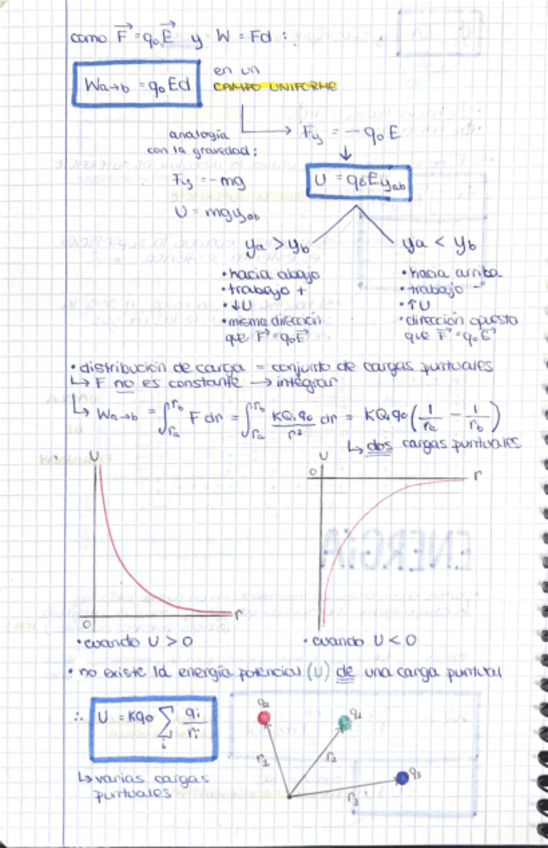 como F⃗ = q₀E⃗ y W = Fd :.
Wa→b = q₀Ed
en un
CAMPO UNIFORME
analogía
con la gravedad:
Fy = -q₀E
Fy = -mg
U = mgyab
U = q₀Eyab
ya > yb
• hacia abajo
• trabajo +
• ↓U
• misma dirección
que F⃗ = q₀E⃗
ya < yb
• hacia arriba
• trabajo -
• ↑U
• dirección opuesta
que F⃗ = q₀E⃗
• distribución de carga = conjunto de cargas puntuales
↳ F no es constante → integrar
↳ Wa→b = ∫ra^rb F dr = ∫ra^rb KQ₁q₀/r² dr = KQ₁q₀(1/ra - 1/rb)
↳ dos cargas puntuales
U
0
r
• cuando U > 0
U
0
r
• cuando U < 0
• no existe la energía potencial (U) de una carga puntual
∴ U = Kq₀ ∑i qi/ri
↳ varias cargas
puntuales
r₁
r₂
r₃
q₃